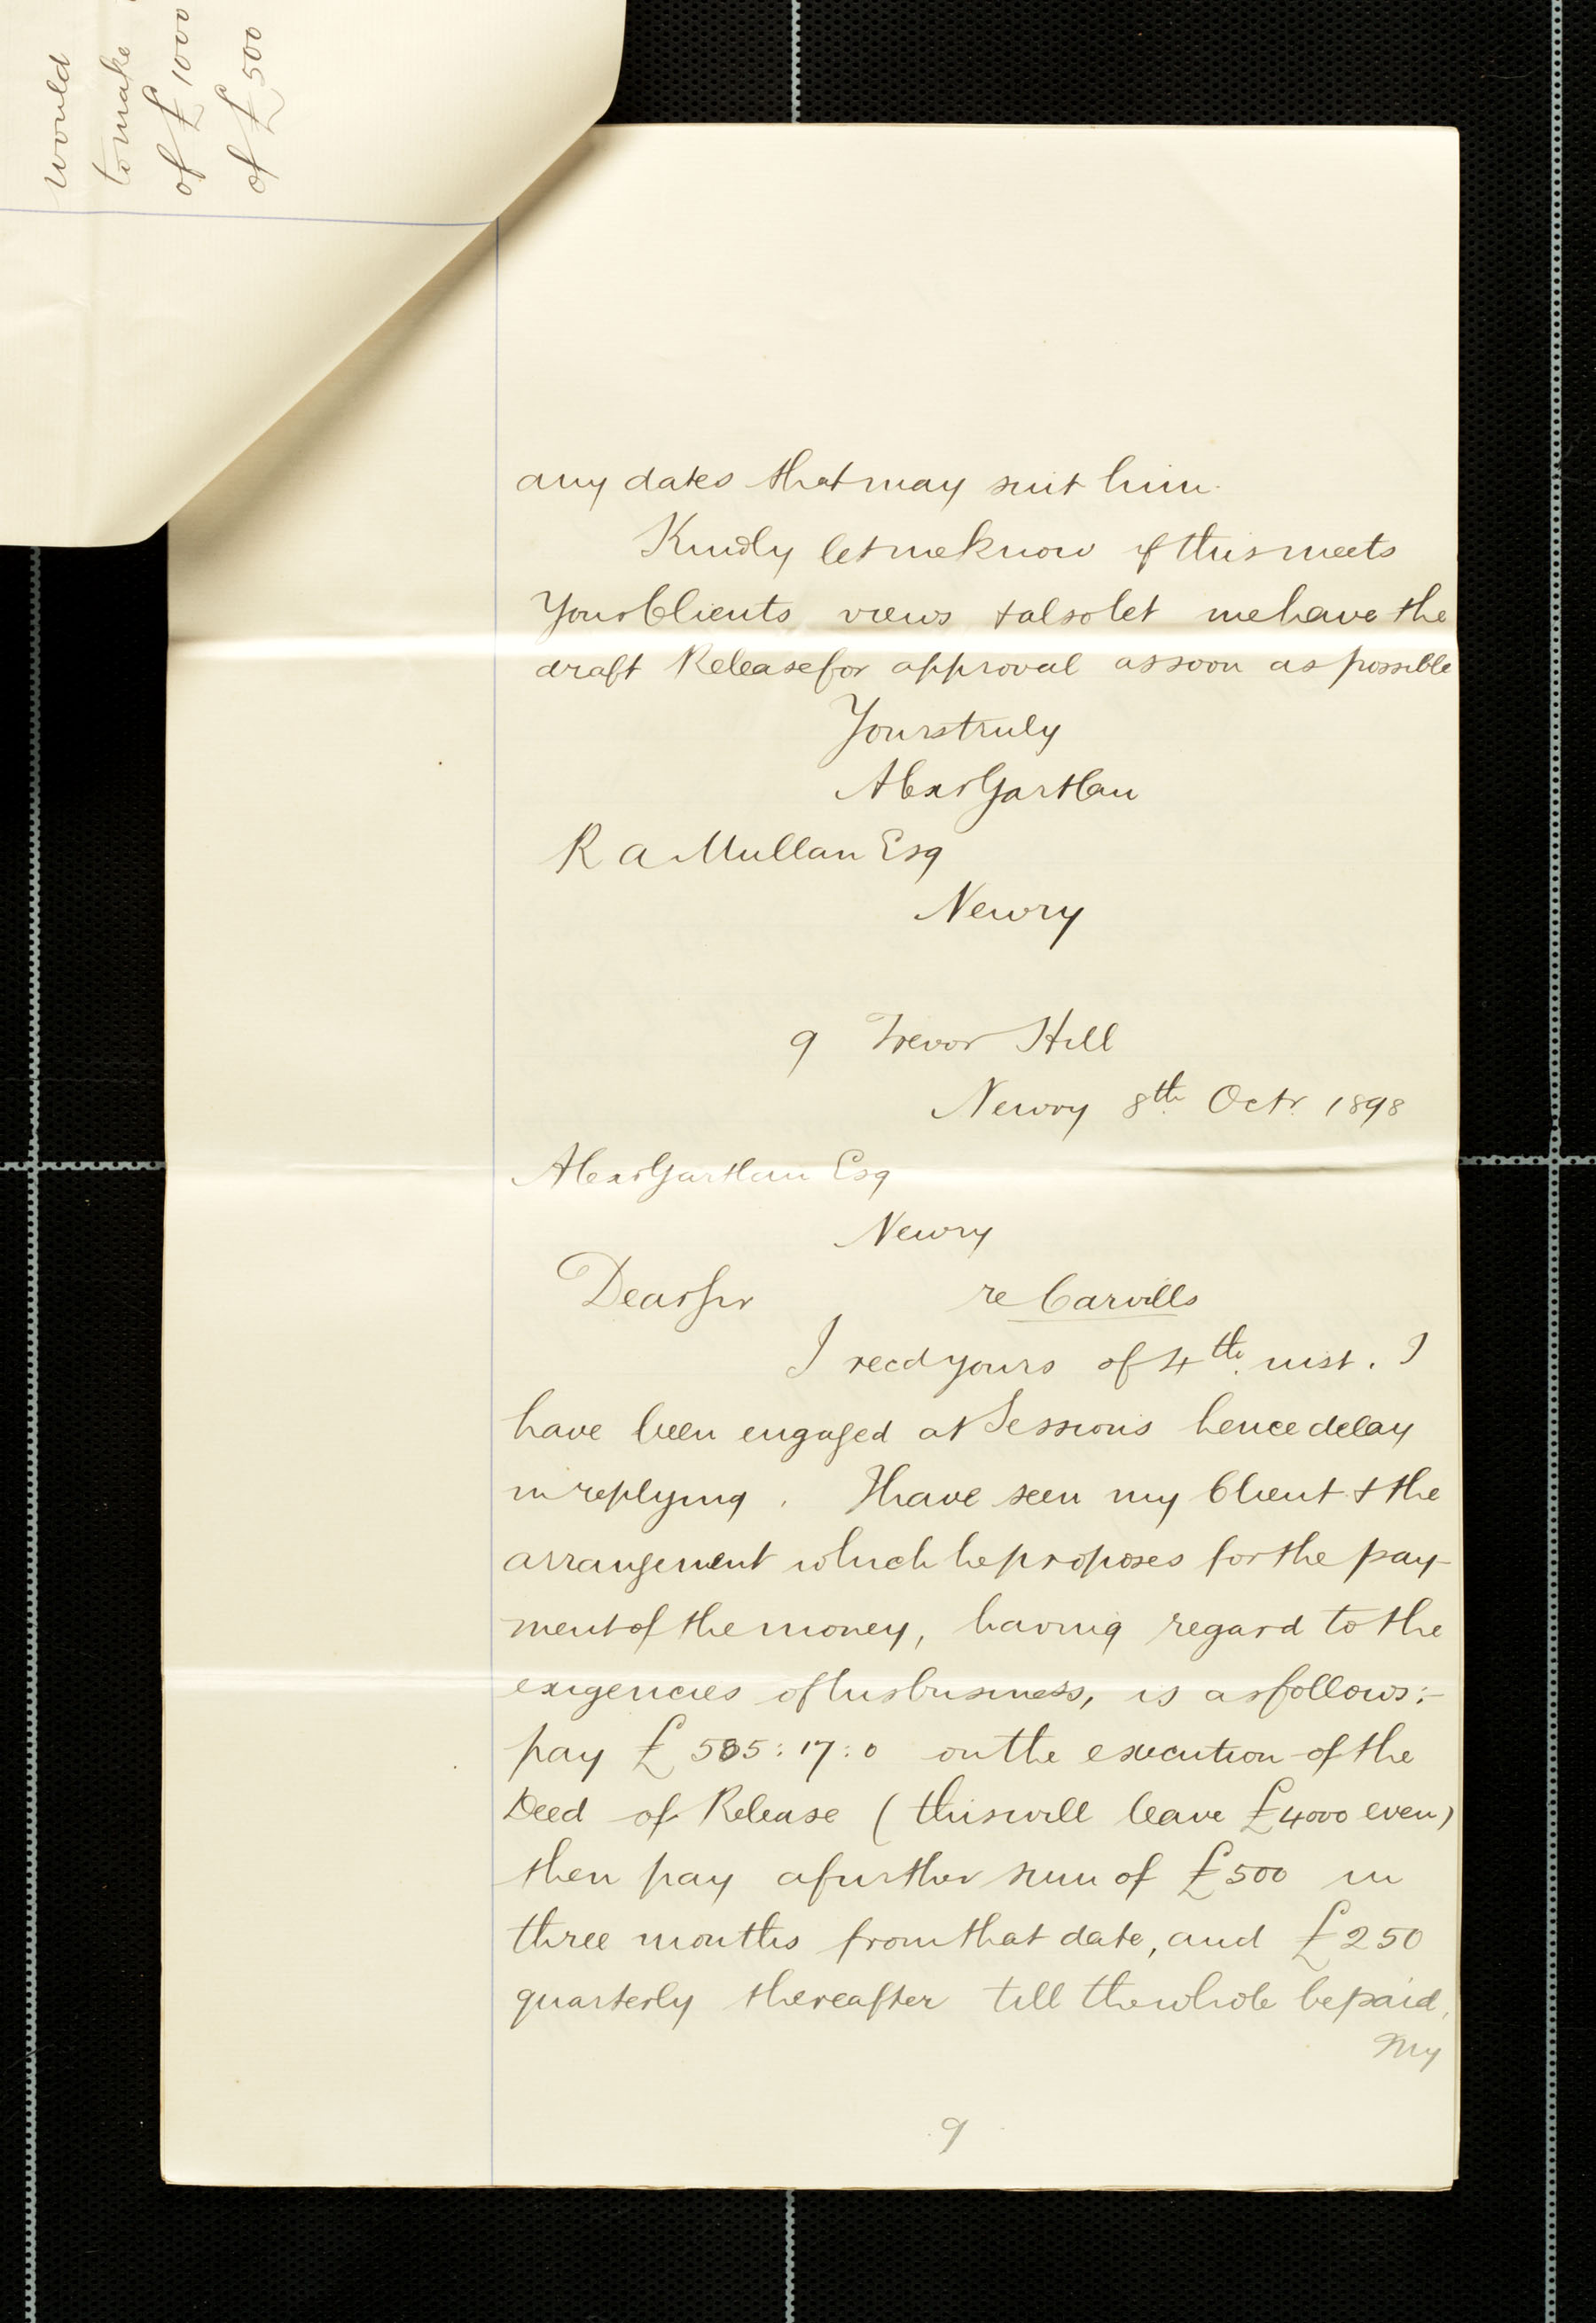 would
to make
of £1000
of £500
any dates that may suit him.
Kindly let me know if this meets
Your Clients views & also let me have the
draft Release for approval as soon as possible
Yours truly
Alexr Gartlan
R A Mullan Esq
Newry
9 Trevor Hill
Newry 8th Octr. 1898
Alexr Gartlan Esq
Newry
Dear Sir re Carvills
I recd yours of 4th inst. I
have been engaged at Sessions hence delay
in replying. I have seen my Client & the
arrangement which he proposes for the pay-
ment of the money, having regard to the
exigencies of his business, is as follows:-
pay £ 585:17:0 on the execution of the
Deed of Release (this will leave £4000 even)
then pay a further sum of £500 in
three months from that date, and £250
quarterly thereafter till the whole be paid.
My
9